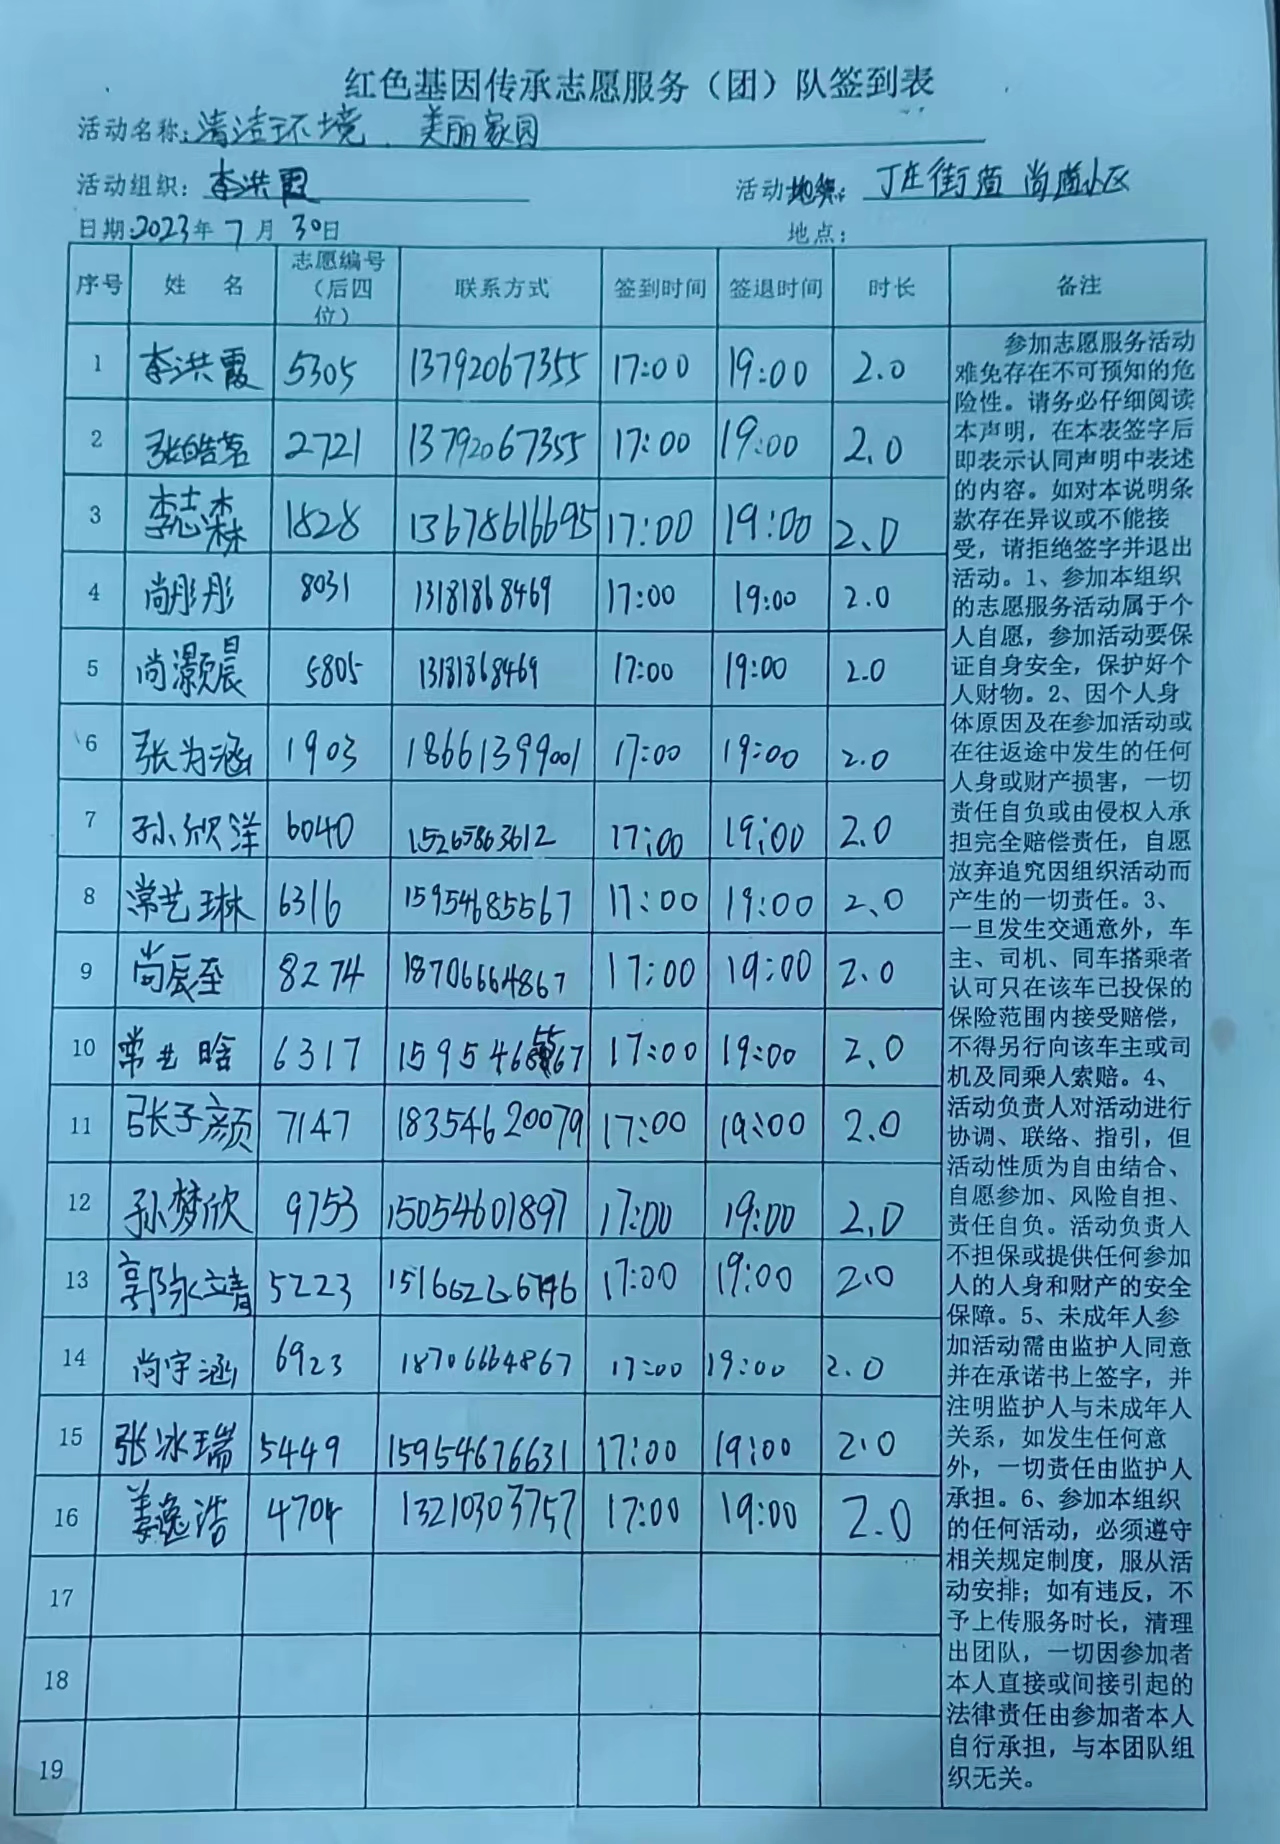 红色基因传承志愿服务（团）队签到表
活动名称:清洁环境 美丽家园
活动组织: 李洪霞 活动地点: 丁庄街道 尚道小区
日期:2023年7月30日 地点:
序号 姓 名 志愿编号（后四位） 联系方式 签到时间 签退时间 时长 备注
1 李洪霞 5305 13792067355 17:00 19:00 2.0
2 张皓茗 2721 13792067355 17:00 19:00 2.0
3 李志森 1828 13678616695 17:00 19:00 2.0
4 尚彤彤 8031 13181868469 17:00 19:00 2.0
5 尚灏晨 5805 13181868469 17:00 19:00 2.0
6 张为涵 1903 18661399001 17:00 19:00 2.0
7 孙欣洋 6040 15265863612 17:00 19:00 2.0
8 常艺琳 6316 15954685567 17:00 19:00 2.0
9 尚辰至 8274 18706664867 17:00 19:00 2.0
10 常艺晗 6317 17:00 19:00 2.0
11 张子颜 7147 18354620079 17:00 19:00 2.0
12 孙梦欣 9753 15054601897 17:00 19:00 2.0
13 郭泳靖 5223 17:00 19:00 2.0
14 尚宇涵 6923 18706664867 17:00 19:00 2.0
15 张冰瑞 5449 15954676631 17:00 19:00 2.0
16 姜逸浩 4704 13210303757 17:00 19:00 2.0
17
18
19
参加志愿服务活动
难免存在不可预知的危
险性。请务必仔细阅读
本声明，在本表签字后
即表示认同声明中表述
的内容。如对本说明条
款存在异议或不能接
受，请拒绝签字并退出
活动。1、参加本组织
的志愿服务活动属于个
人自愿，参加活动要保
证自身安全，保护好个
人财物。2、因个人身
体原因及在参加活动或
在往返途中发生的任何
人身或财产损害，一切
责任自负或由侵权人承
担完全赔偿责任，自愿
放弃追究因组织活动而
产生的一切责任。3、
一旦发生交通意外，车
主、司机、同车搭乘者
认可只在该车已投保的
保险范围内接受赔偿，
不得另行向该车主或司
机及同乘人索赔。4、
活动负责人对活动进行
协调、联络、指引，但
活动性质为自由结合、
自愿参加、风险自担、
责任自负。活动负责人
不担保或提供任何参加
人的人身和财产的安全
保障。5、未成年人参
加活动需由监护人同意
并在承诺书上签字，并
注明监护人与未成年人
关系，如发生任何意
外，一切责任由监护人
承担。6、参加本组织
的任何活动，必须遵守
相关规定制度，服从活
动安排；如有违反，不
予上传服务时长，清理
出团队，一切因参加者
本人直接或间接引起的
法律责任由参加者本人
自行承担，与本团队组
织无关。